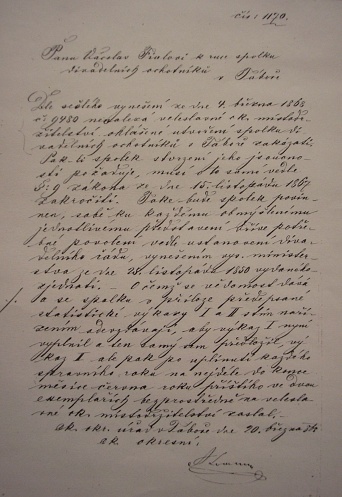 čís: 1170.
Pánu Václavu Finlovi k ruce spolku
divadelních ochotníků
v Táboře
Dle sešlého vynešení ze dne 4. března 1868
č. 9480 nenalezá veleslavné ok. místodr-
žitelství ohlášené utvoření spolku di-
vadelních ochotníků v Táboře zakázati.
Pak-li spolek stvrzení jeho jsoucno-
sti požaduje, musí o to sám vedle
§: 9 zákona ze dne 15. listopadu 1867
zakročiti. Také bude spolek povi-
nen, sobě ku každému obmýšlenému
jednotlivému představení dříve potře-
bné povolení vedle ustanovení diva-
delního řádu, vynešením vys. minister-
stva ze dne 25. listopadu 1850 vydaného
zjednati. - O čemž se vědomost dává
a se spolku v příloze předepsané
statistické výkazy I a II s tím naří-
zením odevzdávají, aby výkaz I nyní
vyplnil a ten samý sem předložil, vý-
kaz I ale pak po uplynutí každého
správního roku na nejdéle do konce
měsíce června roku příštího ve dvou
exemplářích bezprostředně na velesla-
vné ok. místodržitelství zaslal.
Ok. okr. úřad v Táboře dne 20. března
ok okresní